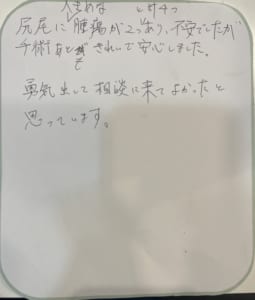 大きめな 計4つ
尻尾に腫瘍が2つあり、不安でしたが
手術あとがきれいで安心しました。
勇気出して相談に来てよかったと
思っています。